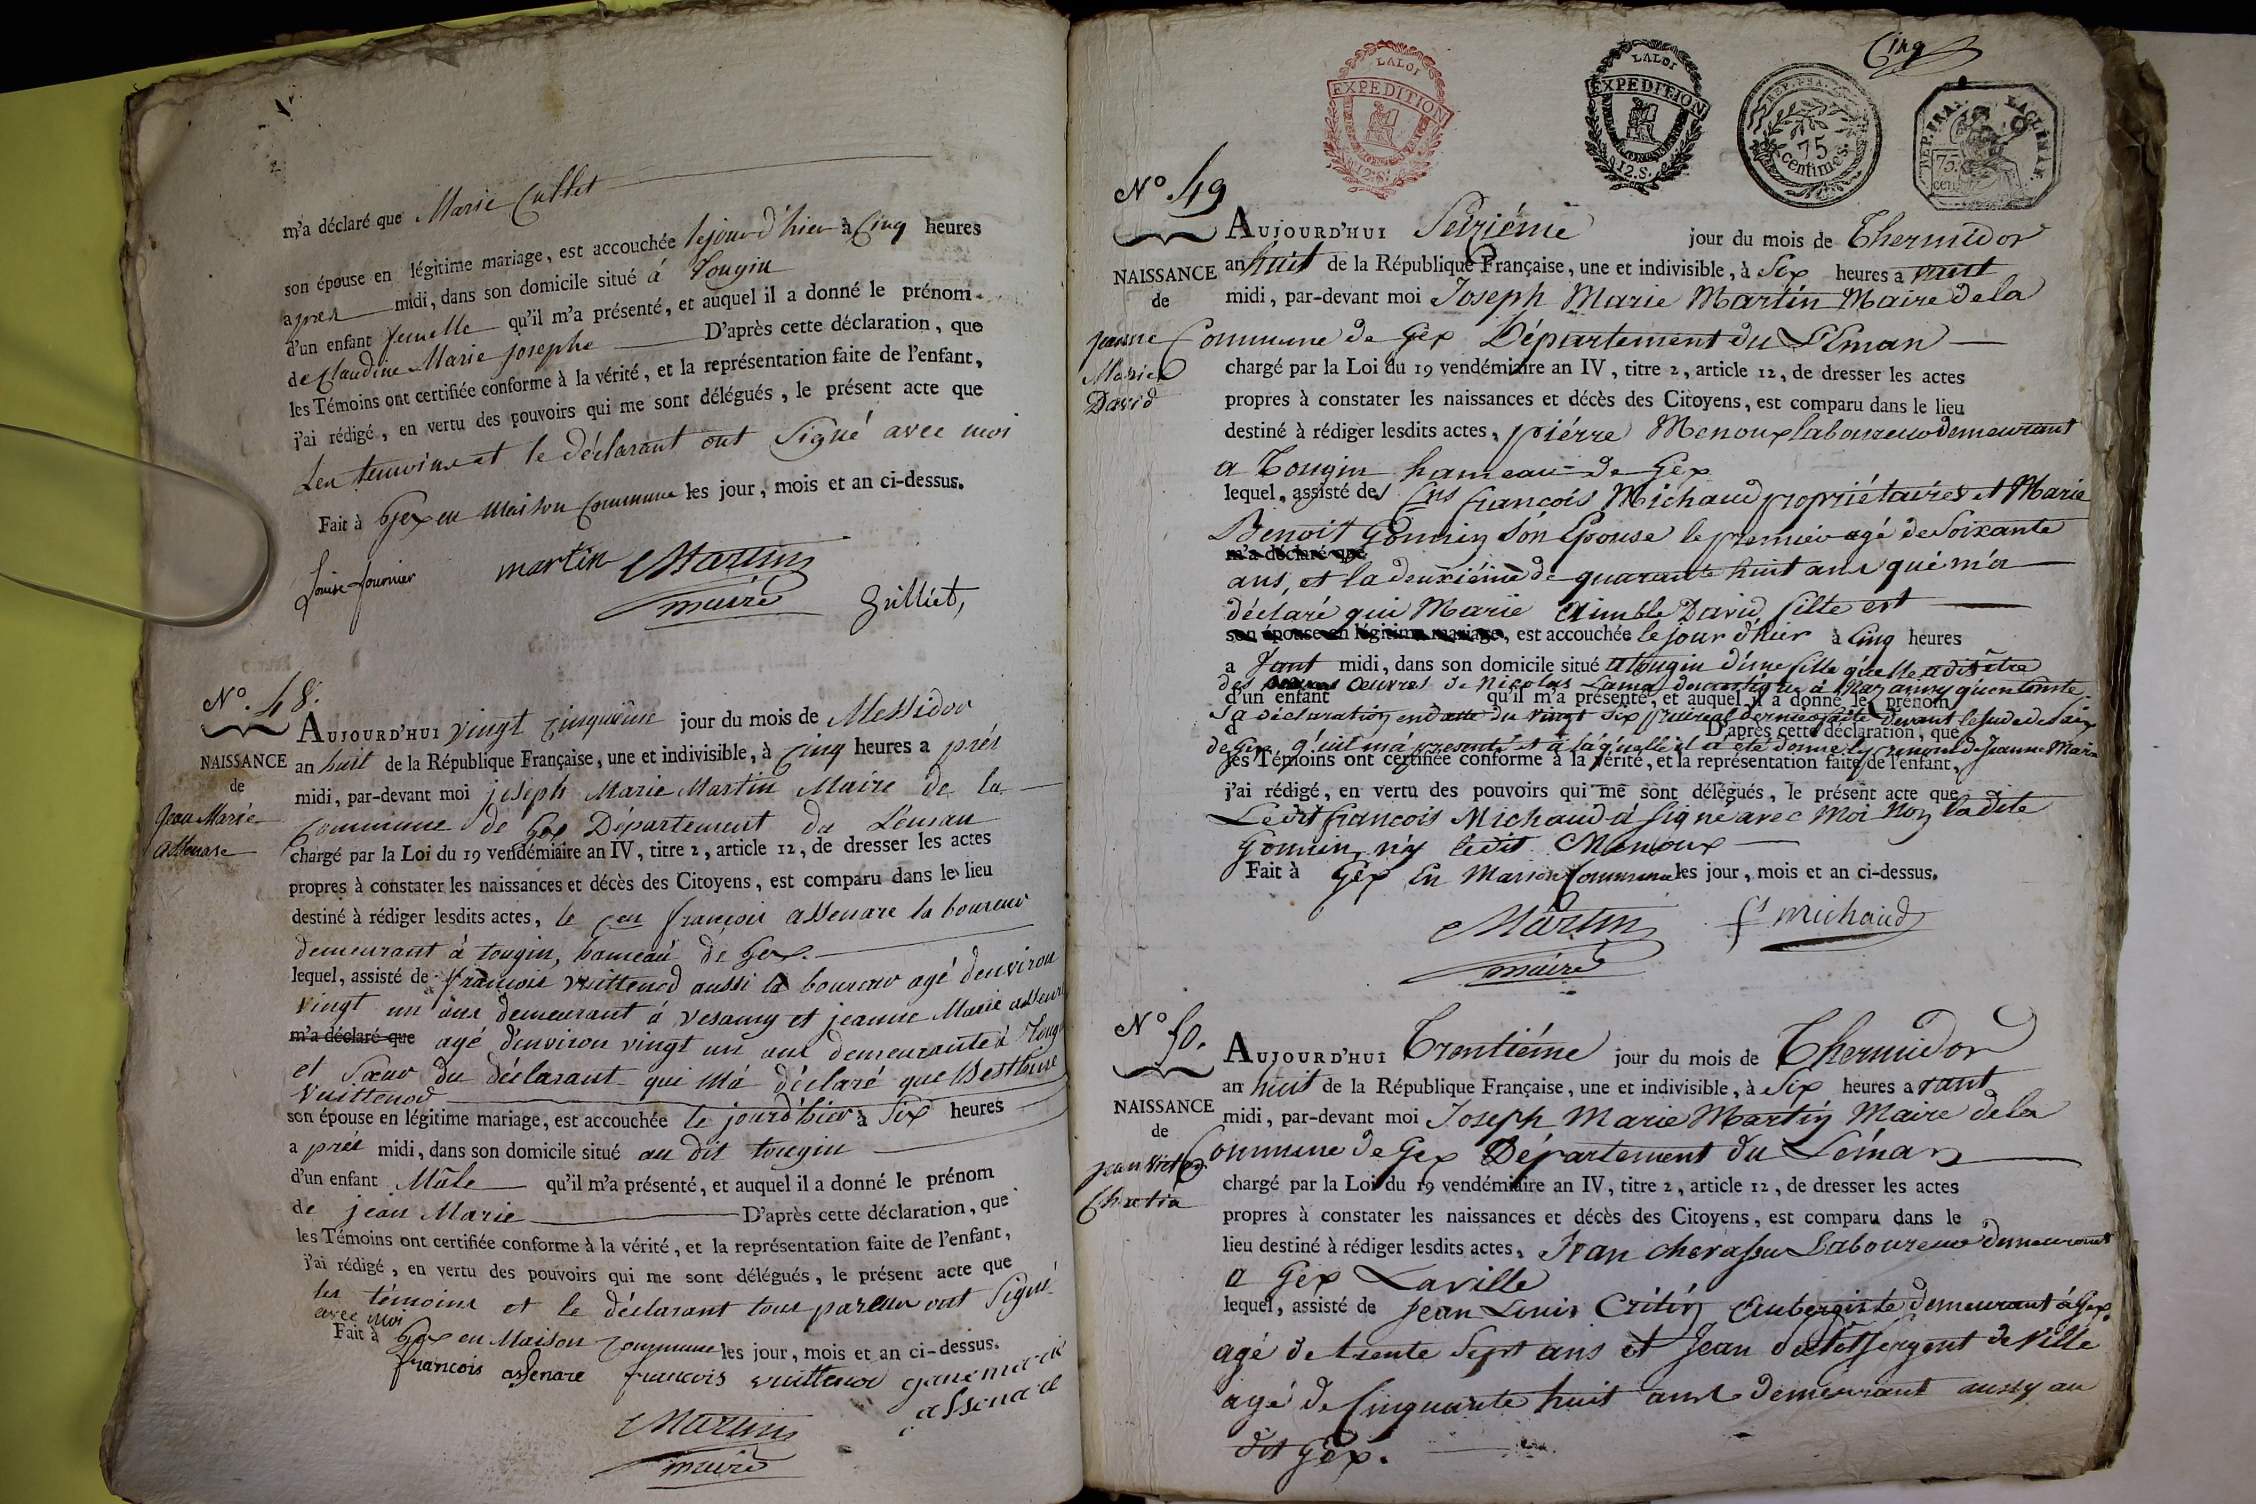 m'a déclaré que Marie Cullet
son épouse en légitime mariage, est accouchée le jour d'hier à Cinq heures
après midi, dans son domicile situé à Tougin
d'un enfant femelle qu'il m'a présenté, et auquel il a donné le prénom
de Claudine Marie Josephe D'après cette déclaration, que
les Témoins ont certifiée conforme à la vérité, et la représentation faite de l'enfant,
j'ai rédigé, en vertu des pouvoirs qui me sont délégués, le présent acte que
Les temoins et le déclarant ont Signé avec moi
Fait à Gex en Maison Commune les jour, mois et an ci-dessus.
Louise fournier martin Martin
maire Grilliet,
N.º 48.
AUJOURD'HUI vingt cinquième jour du mois de Messidor
NAISSANCE
de
Jean Marie
assenare
an huit de la République Française, une et indivisible, à Cinq heures a près
midi, par-devant moi joseph Marie Martin Maire de la
Commune de Gex Département du Léman
chargé par la Loi du 19 vendémiaire an IV, titre 2, article 12, de dresser les actes
propres à constater les naissances et décès des Citoyens, est comparu dans le lieu
destiné à rédiger lesdits actes, le Cen françois assenare laboureur
demeurant à tougin, hameau de Gex.
lequel, assisté de françois vuittenod aussi laboureur agé d'environ
vingt un ans demeurant à vesancy et jeanne Marie
m'a déclaré que agé d'environ vingt un ans demeurante à
et Sœur du déclarant qui M'a déclaré que
Vuittenod
son épouse en légitime mariage, est accouchée le jour d'hier à Six heures
a près midi, dans son domicile situé au dit tougin
d'un enfant Mâle qu'il m'a présenté, et auquel il a donné le prénom
de jean Marie D'après cette déclaration, que
les Témoins ont certifiée conforme à la vérité, et la représentation faite de l'enfant,
j'ai rédigé, en vertu des pouvoirs qui me sont délégués, le présent acte que
les témoins et le déclarant tous ont Signé
avec moi
Fait à Gex en Maison Commune les jour, mois et an ci-dessus.
francois assenare francois vuittenod genemarie
assenare
Martin
maire
Cinq
LA LOI
EXPEDITION
12.S.
LA LOI
EXPEDITION
12.S.
REP. FRA.
75
centimes.
REP. FRA.
75.
cen
N.º 49
AUJOURD'HUI Seiziéme jour du mois de Thermidor
NAISSANCE
de
Jeanne
Marie
David
an huit de la République Française, une et indivisible, à Six heures a vant
midi, par-devant moi Joseph Marie Martin Maire de la
Commune de Gex Département du Léman
chargé par la Loi du 19 vendémiaire an IV, titre 2, article 12, de dresser les actes
propres à constater les naissances et décès des Citoyens, est comparu dans le lieu
destiné à rédiger lesdits actes, piérre Menoux laboureur demeurant
a Tougin hameau de Gex
lequel, assisté des Cns francois Michaud propriétaires et Marie
Benoit Gonnin són Epouse le premier agé de Soixante
m'a déclaré que
ans, et la deuxiéme de quarante huit ans qué m'a
déclaré qui Marie Aimble David fille est
son épouse en légitime mariage, est accouchée le jour d'hier à Cinq heures
a vant midi, dans son domicile situé a tougin d'une fille qu'elle a dit être
des œuvres de Nicolas
d'un enfant qu'il m'a présenté, et auquel il a donné le prénom
Sa déclaration en datte du vingt six prairéal dernier faite devant le Juge de Paix
d D'après cette déclaration, que
de Gex, qu'il m'a presenté et à laquelle il a été donné le prenom de Jeanne Marie
les Témoins ont certifiée conforme à la vérité, et la représentation faite de l'enfant,
j'ai rédigé, en vertu des pouvoirs qui me sont délégués, le présent acte que
Ledit francois Michaud a Signé avec Moi Non la dite
Gonnin, ny ledit Menoux
Fait à Gex En Maison Commune les jour, mois et an ci-dessus.
Martin fs michaud
maire
N.º 50.
AUJOURD'HUI Trentiéme jour du mois de Thermidor
NAISSANCE
de
an huit de la République Française, une et indivisible, à Six heures a vant
midi, par-devant moi Joseph Marie Martin Maire de la
Commune de Gex Département du Léman
chargé par la Loi du 19 vendémiaire an IV, titre 2, article 12, de dresser les actes
propres à constater les naissances et décès des Citoyens, est comparu dans le
lieu destiné à rédiger lesdits actes, Jean Laboureur demeurant
a Gex La ville
lequel, assisté de Jean Louis Critin Aubergiste demeurant à Gex,
agé de trente Sept ans et Jean Sergent de Ville
agé de Cinquante huit ans demeurant aussy au
dit Gex.